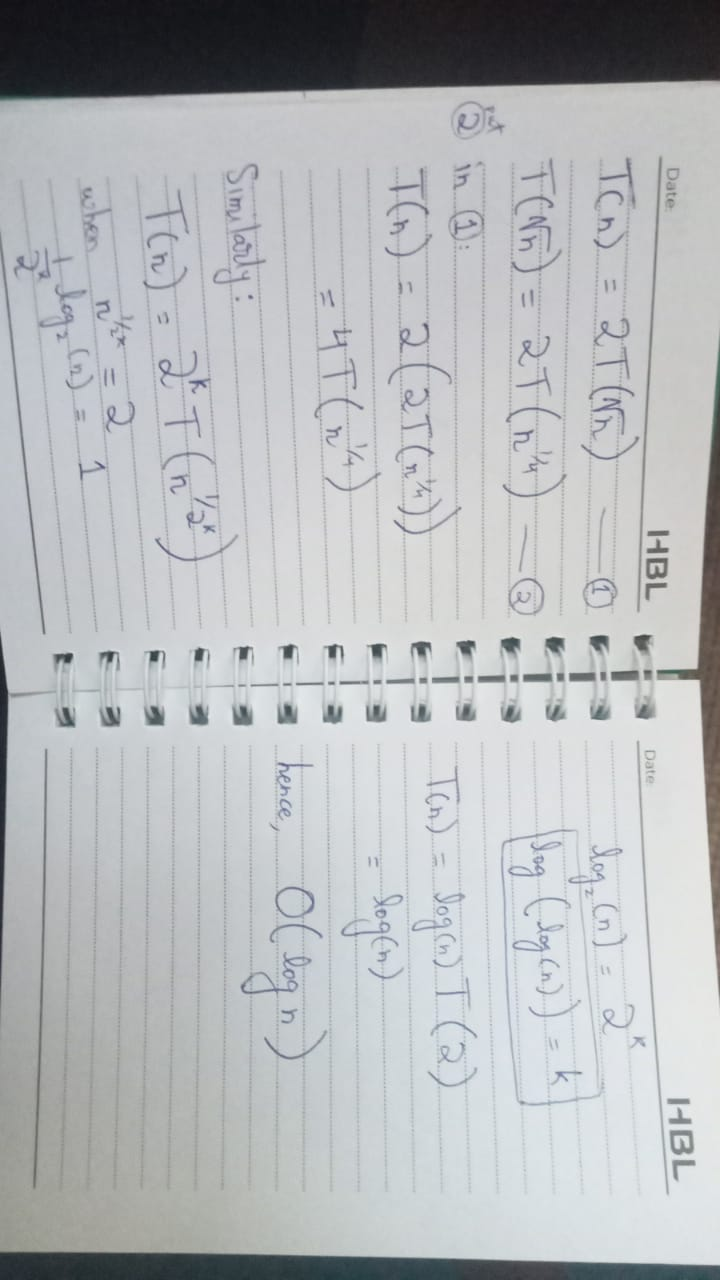 HBL
Date:
T(n) = 2T(√n) — ①
T(√n) = 2T(n^1/4) — ②
put
② in ①:
T(n) = 2(2T(n^1/4))
= 4T(n^1/4)
Similarly:
T(n) = 2^k T(n^1/2^k)
when n^1/2^k = 2
1/2^k log₂(n) = 1
HBL
Date:
log₂(n) = 2^k
log(log(n)) = k
T(n) = log(n) T(2)
= log(n)
hence, O(log n)